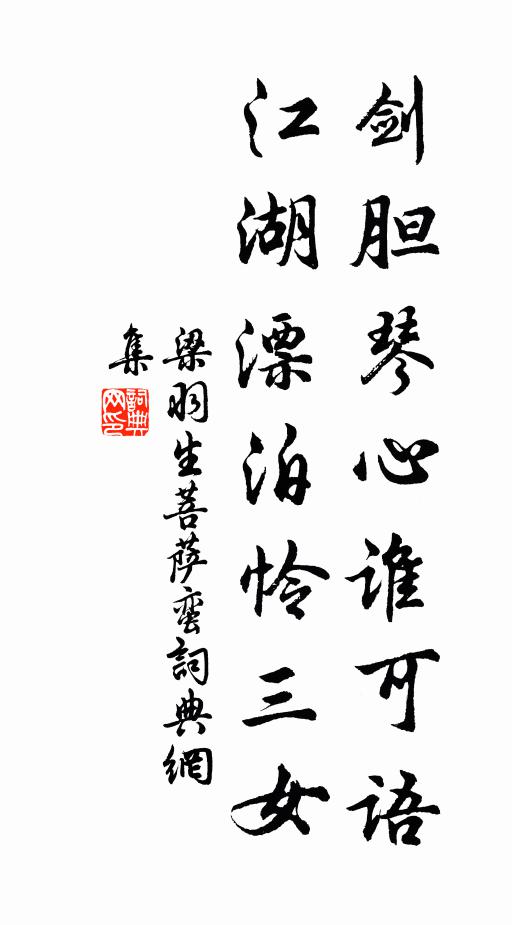 剑胆琴心谁可语
江湖漂泊怜三女
梁羽生菩萨蛮詞典網
集
詞典網印